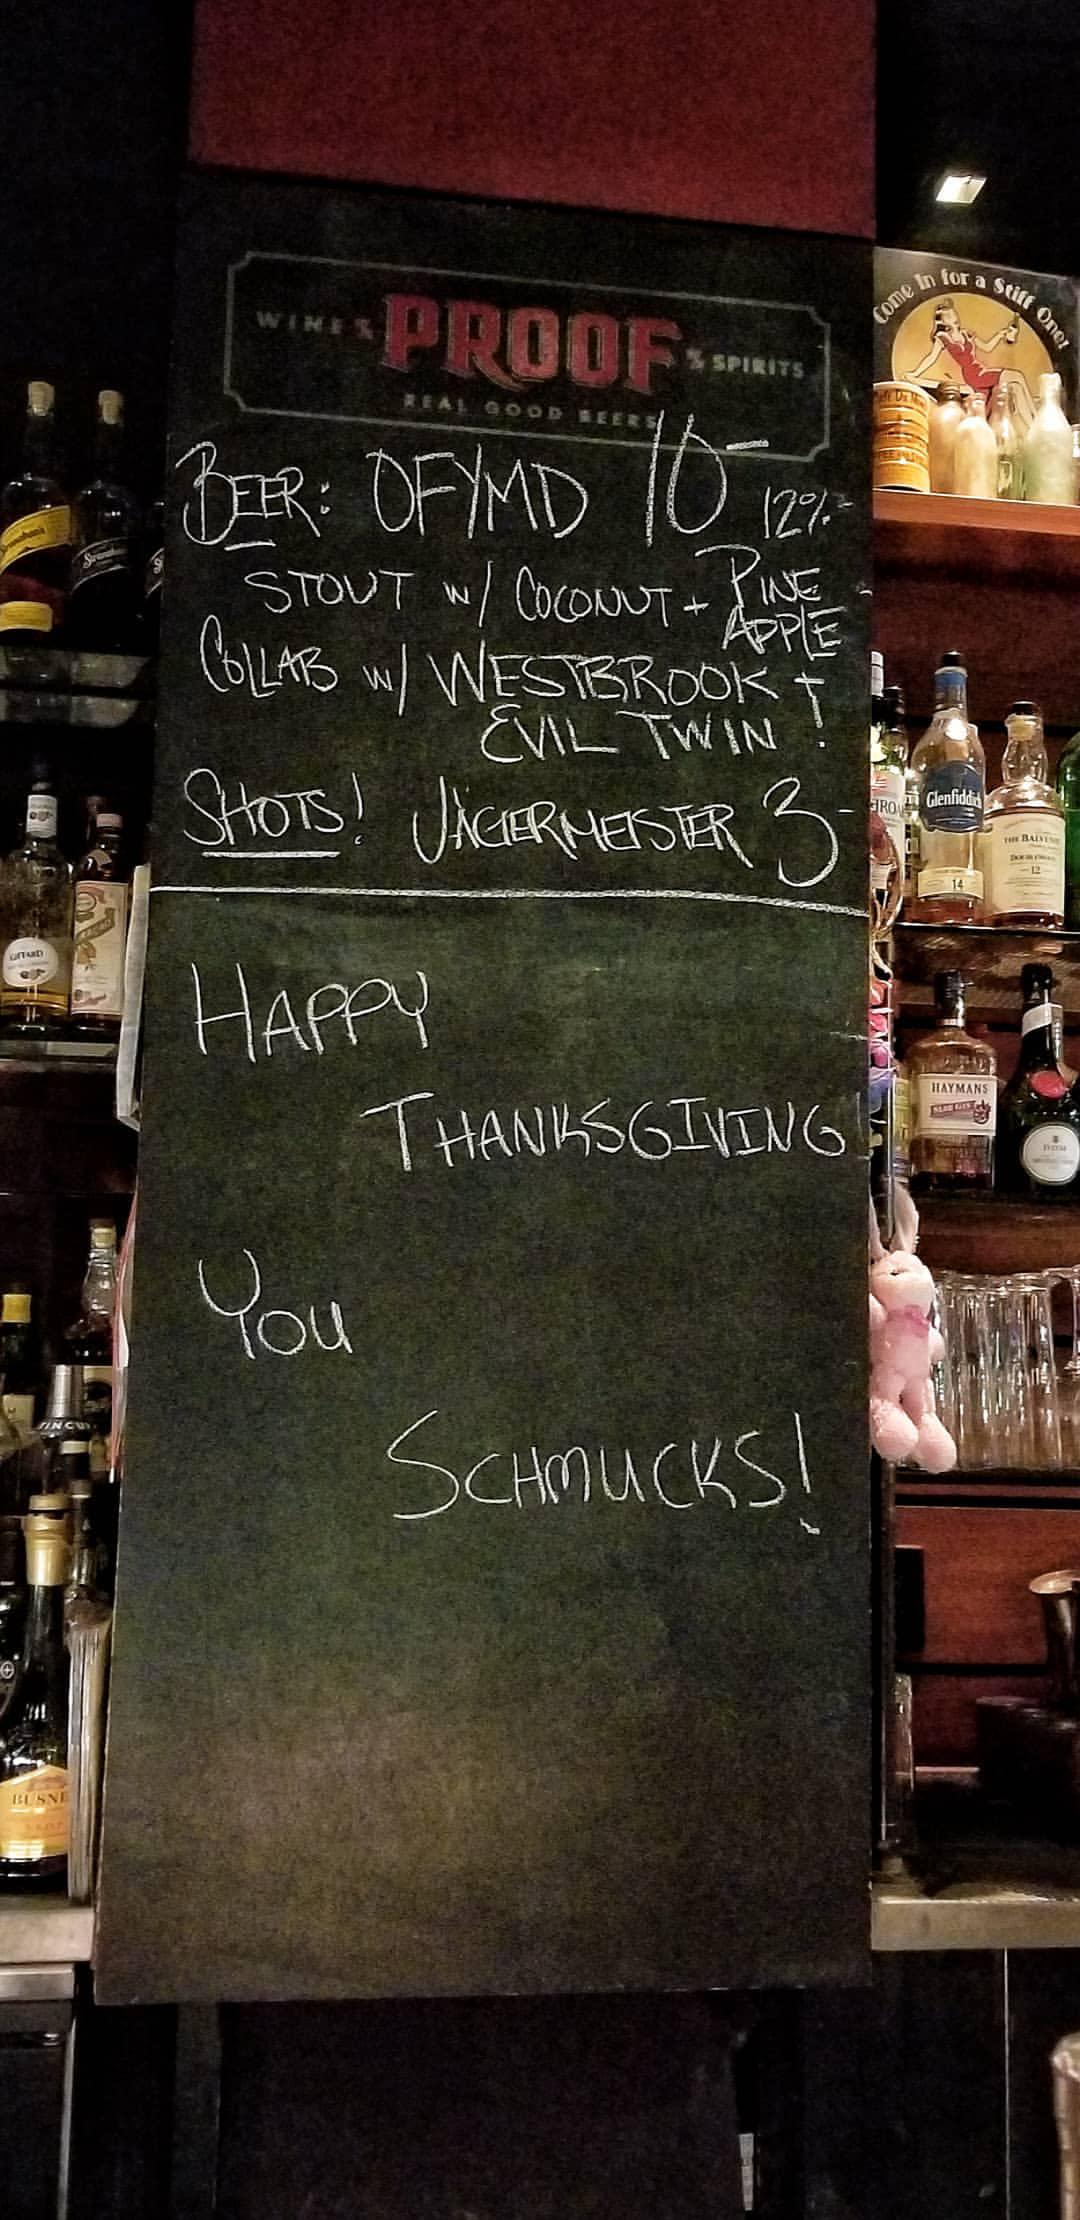 Come In for a Stiff One!
WINES & PROOF & SPIRITS
REAL GOOD BEERS
BEER: OFYMD 10- 12%
STOUT w/ COCONUT + PINE
APPLE
COLLAB w/ WESTBROOK +
EVIL TWIN !
SHOTS! JÄGERMEISTER 3-
HAPPY
THANKSGIVING
YOU
SCHMUCKS!
Glenfiddich
14
THE BALVENIE
DOUBLEWOOD
12
GIFFARD
HAYMANS
SLOE GIN
BUSNE